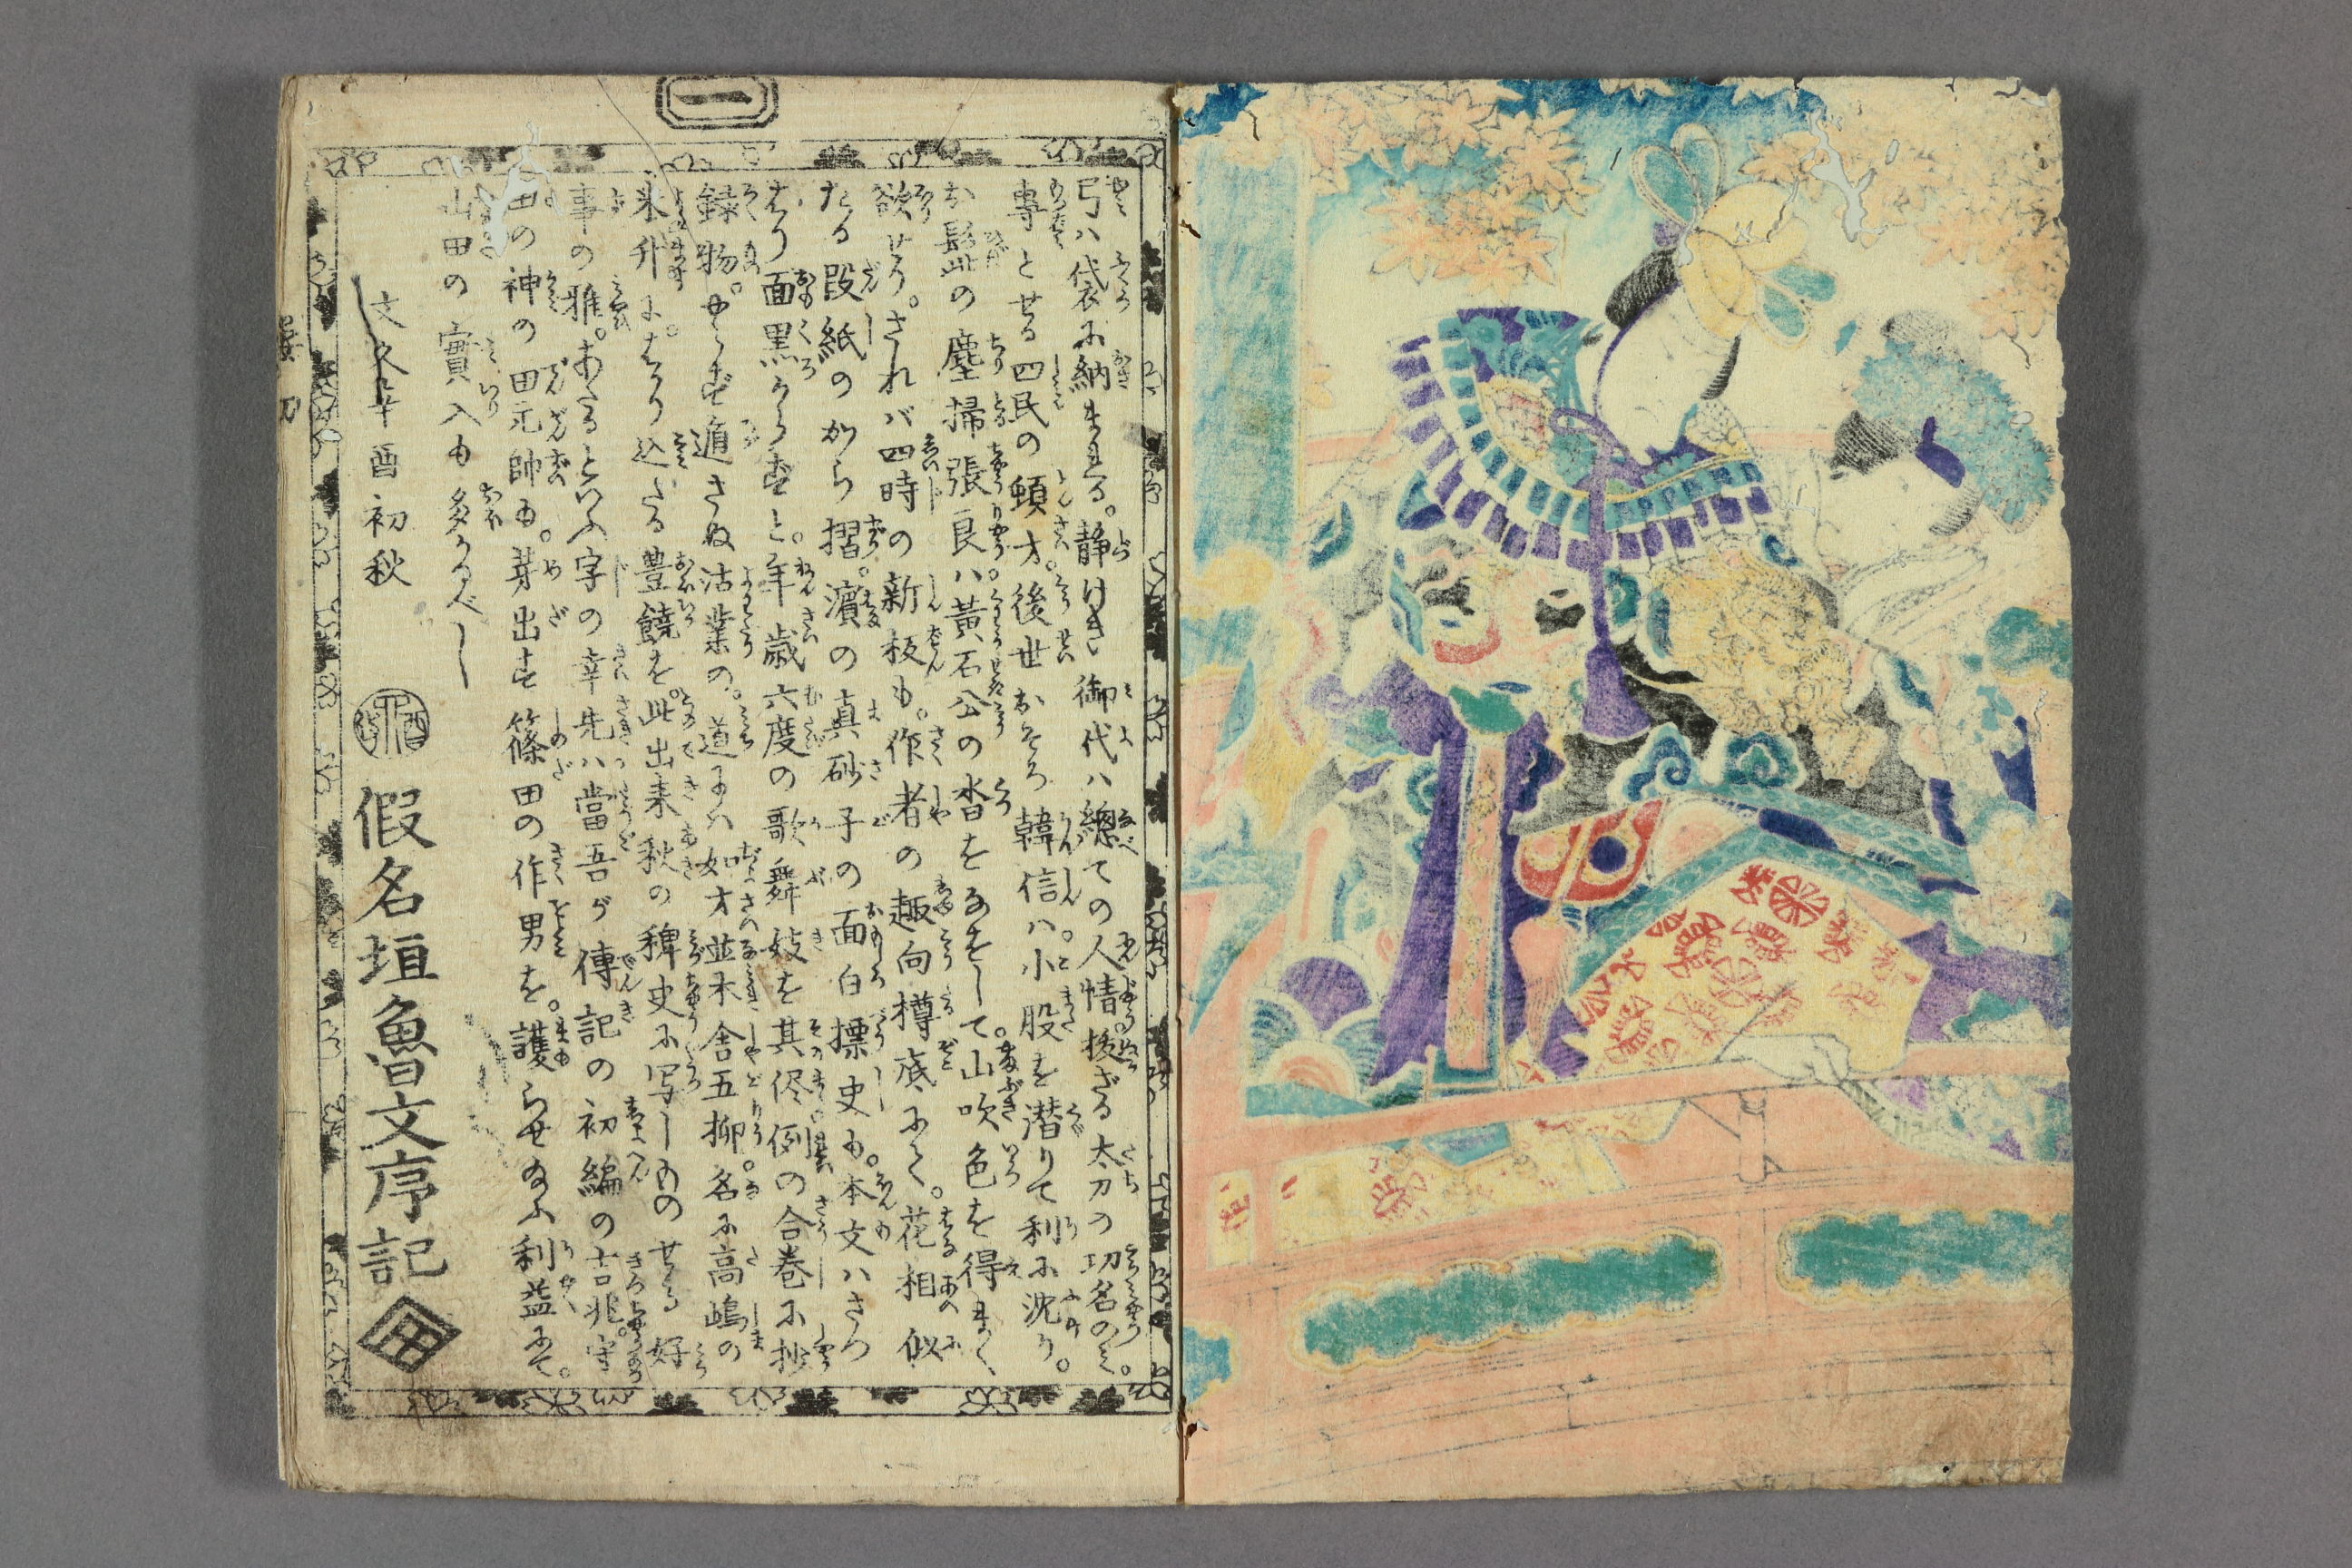 一
弓ハ袋に納まれる。静けき御代ハ總ての人情抜ざる太刀の功名のミ。
専とせる四民の頓才。後世おそろ韓信ハ小股を潜りて利に沈り。
お髭の塵掃張良ハ黄石公の沓をなをして。山吹色を得まく
欲せり。されバ四時の新板も。作者の趣向樽底にて。花相似
たる段紙のから摺。濱の真砂子の面白標史も。本文ハさつ
はり面黒からずと。年歳六度の歌舞妓を其侭例の合巻に抄
録物。やらず遁さぬ沽業の。道にハ如才並木舎五柳。名に高嶋の
米升に。はり込たる豊饒を。此出来秋の稗史に写しものせる好
事の雅。あたるといふ字の幸先ハ當吾が傳記の初編の吉兆。守
田の神の田元帥も。芽出す篠田の作男を。護らせ給ふ利益にて。
山田の實入も多かるべし
文久辛酉初秋
假名垣魯文序記